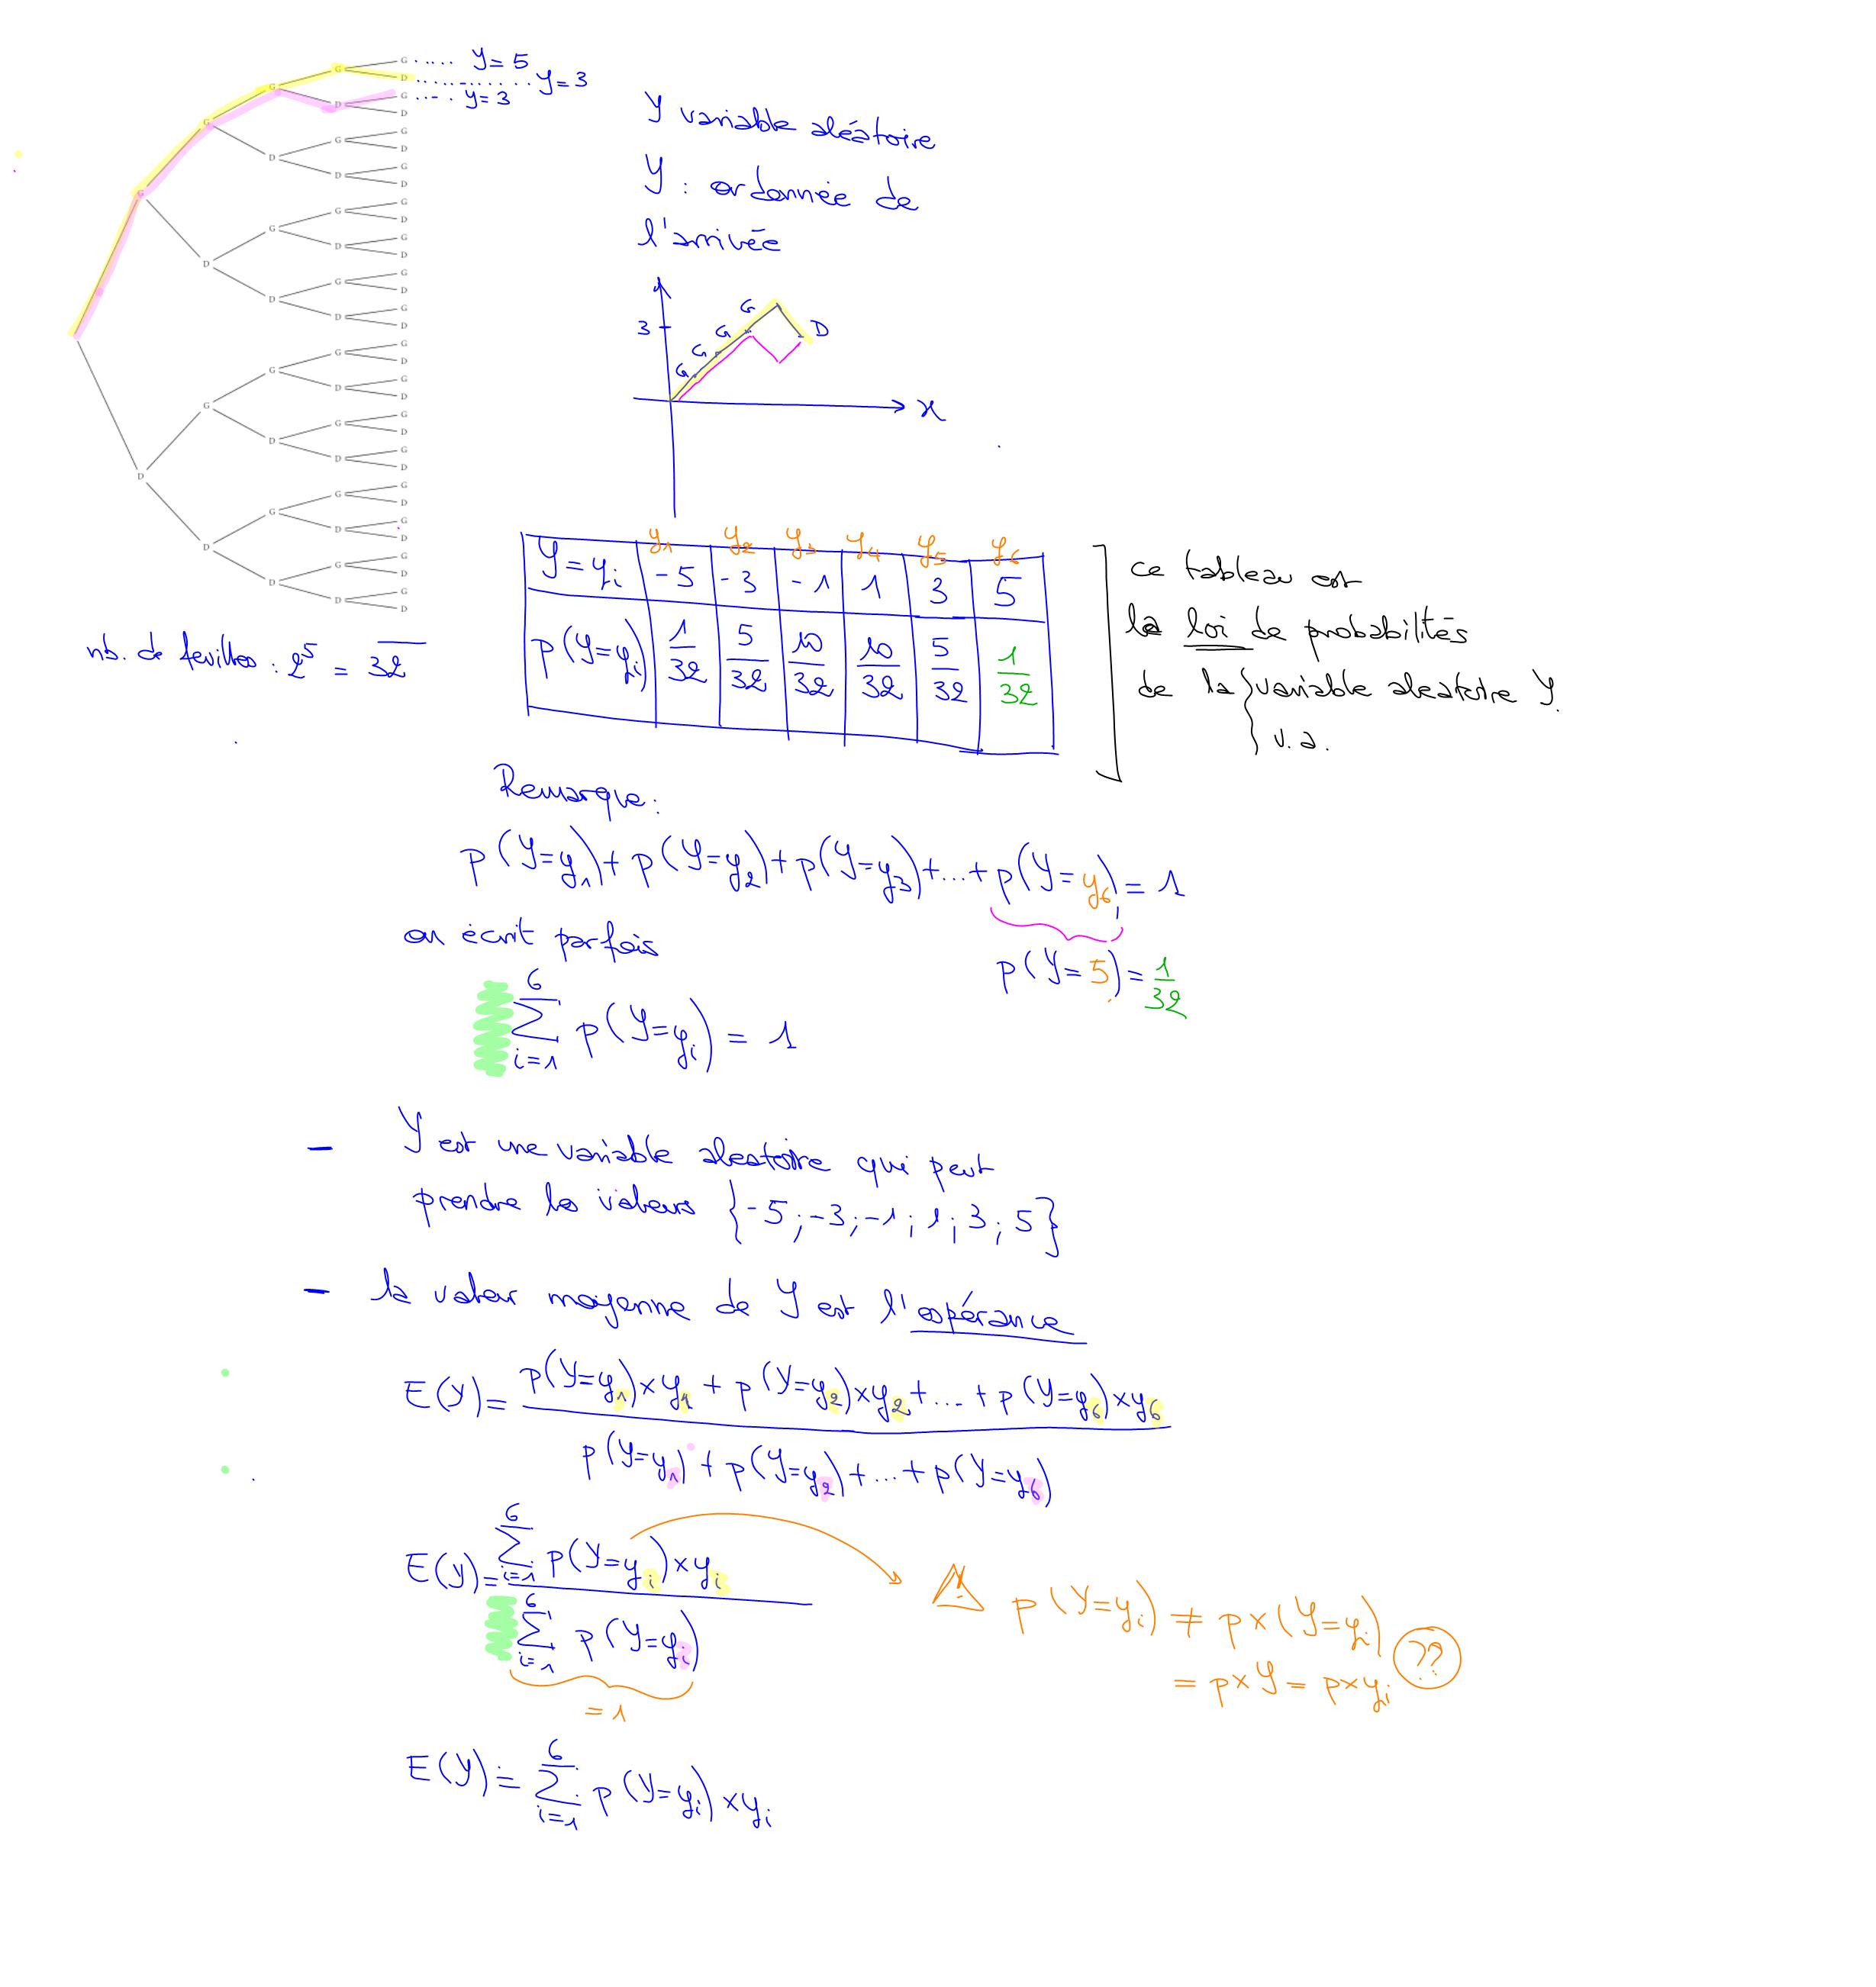 G ..... y = 5
D ............ y = 3
G ... . y = 3
D
G
D
G
D
G
D
G
D
G
D
G
D
G
D
G
D
G
D
G
D
G
D
G
D
G
D
G
D
G
D
G
D
G
D
G
D
G
D
G
D
G
D
G
D
G
D
G
D
G
D
G
D
G
D
G
D
G
D
nb. de feuilles : 2⁵ = 32
Y variable aléatoire
Y : ordonnée de
l'arrivée
3
G G G G D
x
y₁ y₂ y₃ y₄ y₅ y₆
Y = yᵢ -5 -3 -1 1 3 5
p(Y=yᵢ) 1/32 5/32 10/32 10/32 5/32 1/32
ce tableau est
la loi de probabilités
de la variable aleatoire Y.
v.a.
Remarque :
p(Y=y₁) + p(Y=y₂) + p(Y=y₃) + ... + p(Y=y₆) = 1
on écrit parfois
p(Y=5) = 1/32
6
∑ p(Y=yᵢ) = 1
i=1
- Y est une variable aleatoire qui peut
prendre les valeurs {-5 ; -3 ; -1 ; 1 ; 3 ; 5}
- la valeur moyenne de Y est l'espérance
E(Y) = p(Y=y₁)×y₁ + p(Y=y₂)×y₂ + ... + p(Y=y₆)×y₆
p(Y=y₁) + p(Y=y₂) + ... + p(Y=y₆)
6
E(Y) = ∑ p(Y=yᵢ)×yᵢ
i=1
6
∑ p(Y=yᵢ)
i=1
= 1
! p(Y=yᵢ) ≠ p×(Y=yᵢ)
= p×Y = p×yᵢ ??
6
E(Y) = ∑ p(Y=yᵢ)×yᵢ
i=1